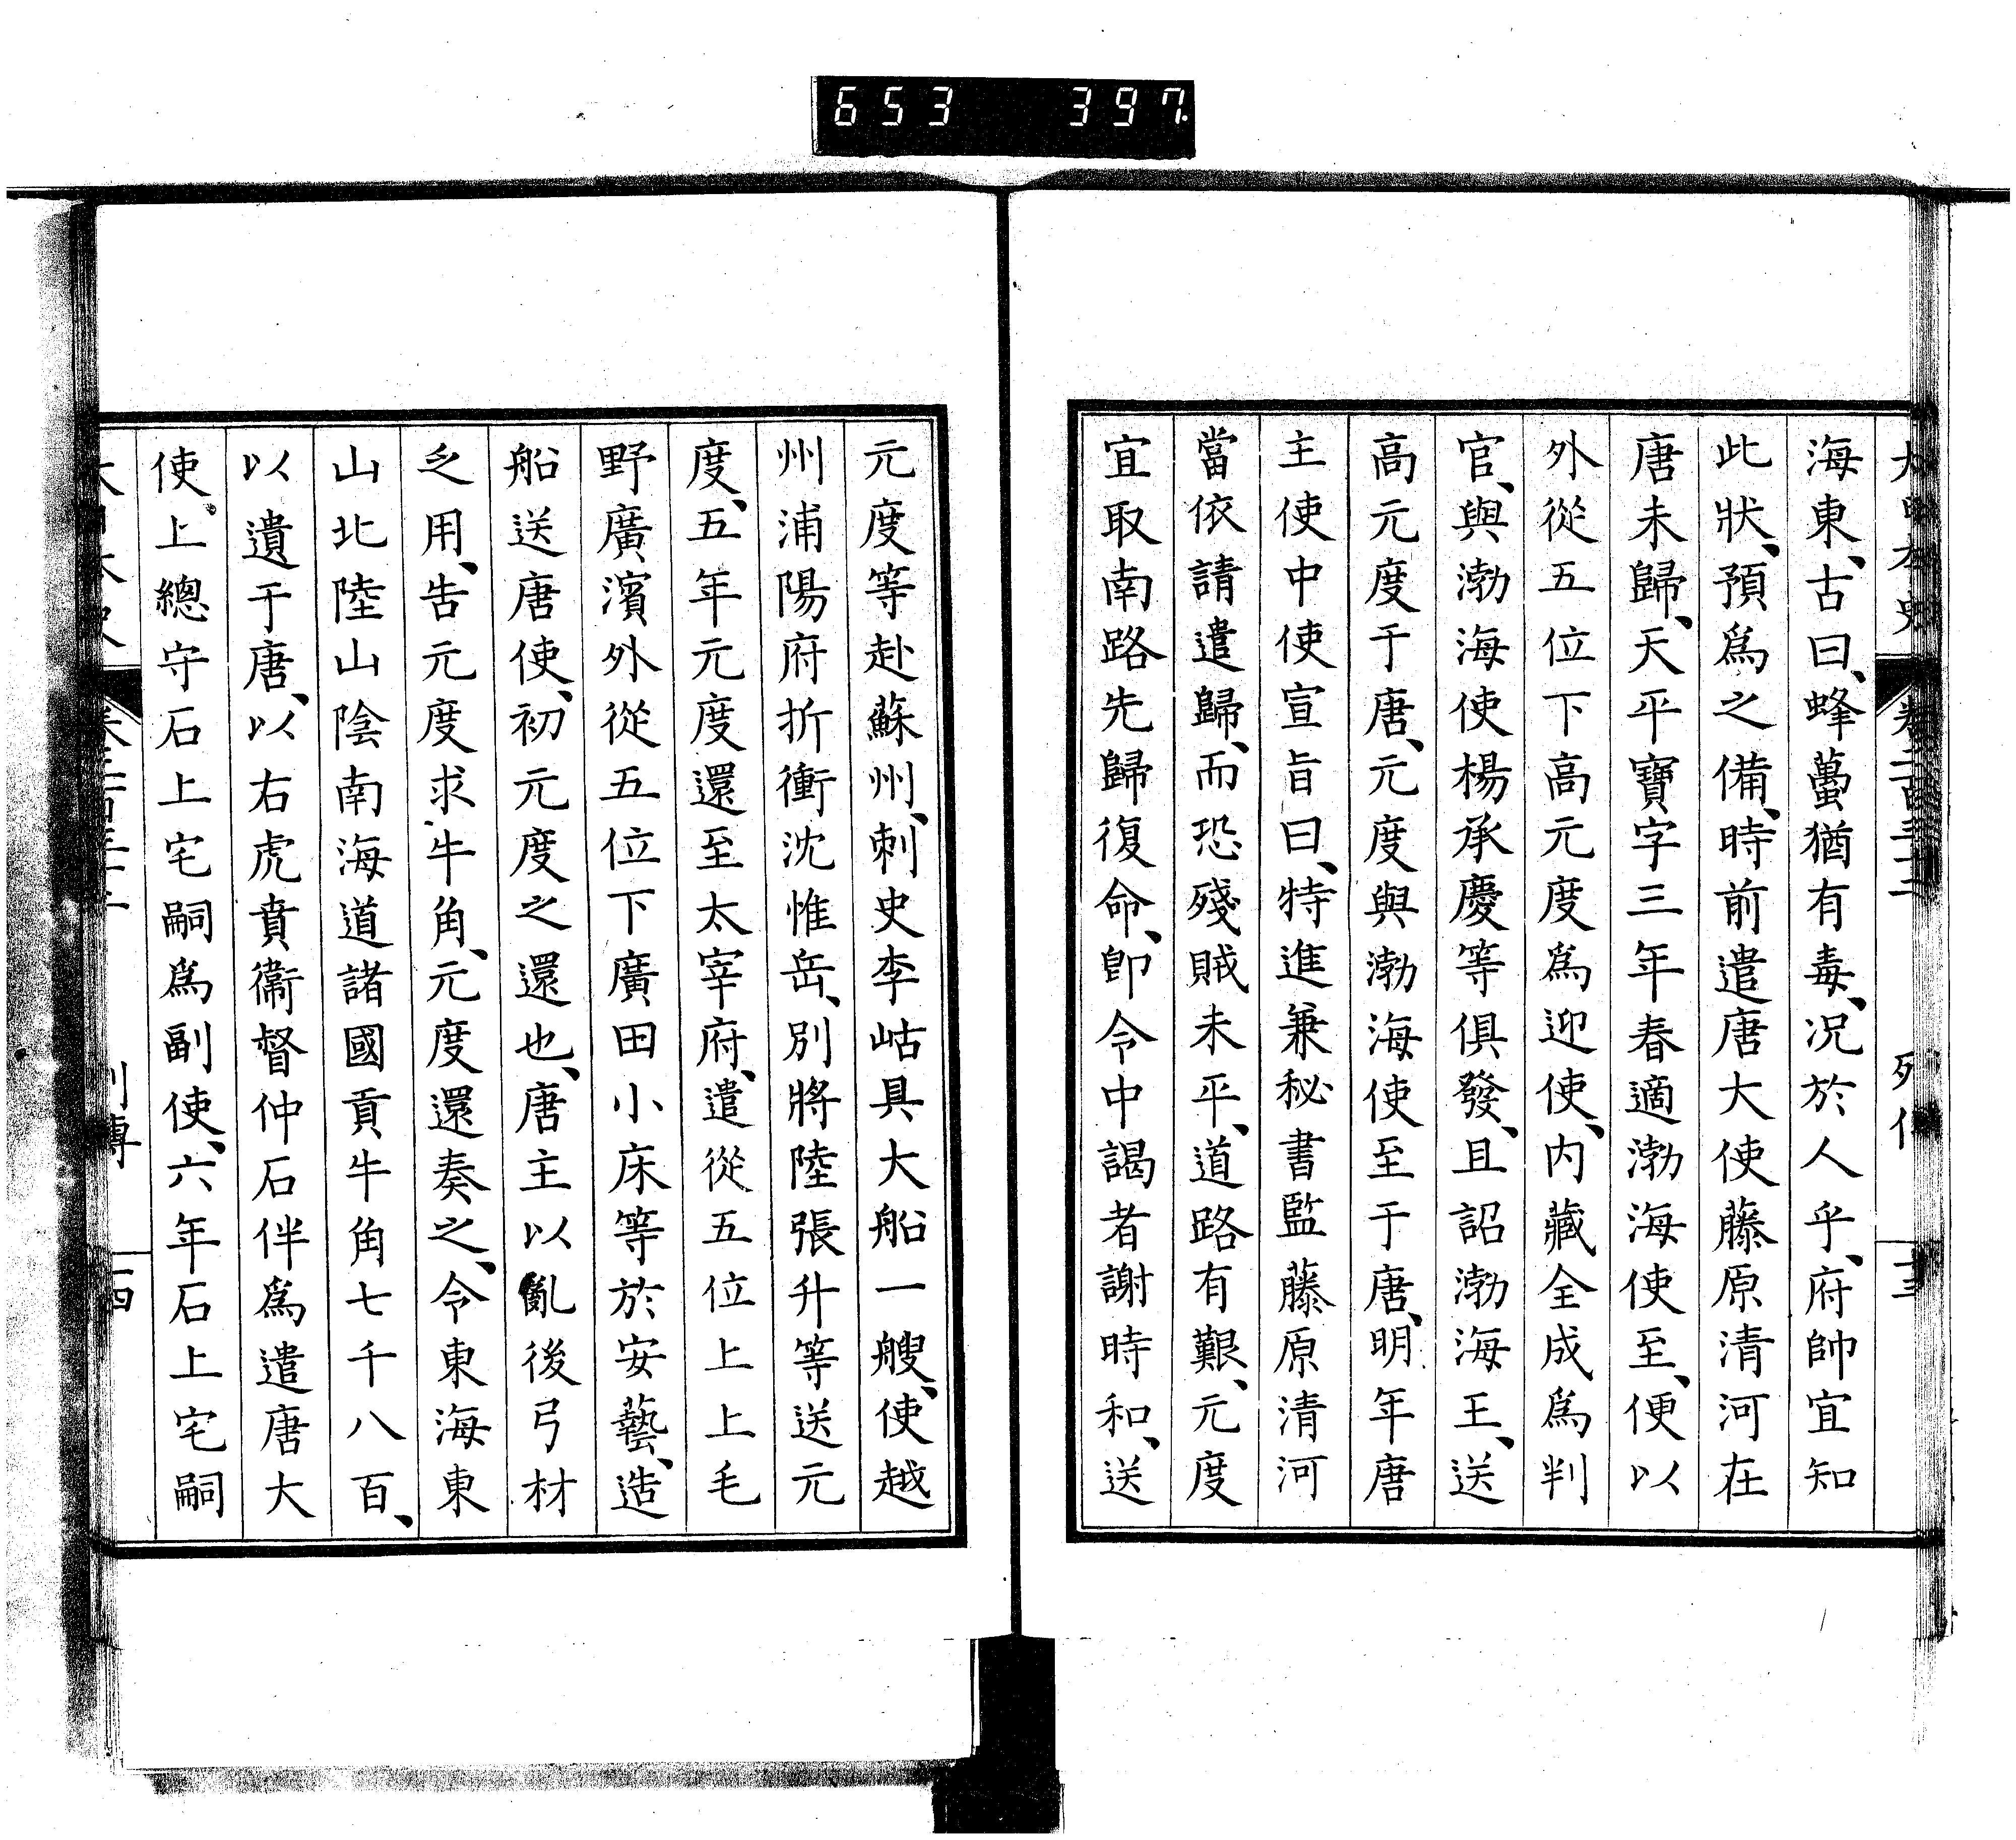 653 397
海東、古曰、蜂蠆猶有毒、况於人乎、府帥宜知
此狀、預爲之備、時前遣唐大使藤原清河在
唐未歸、天平寶字三年春適渤海使至、便以
外從五位下高元度爲迎使、内藏全成爲判
官、與渤海使楊承慶等俱發、且詔渤海王、送
高元度于唐、元度與渤海使至于唐、明年唐
主使中使宣旨曰、特進兼秘書監藤原清河
當依請遣歸、而恐殘賊未平、道路有艱、元度
宜取南路先歸復命、卽令中謁者謝時和、送
元度等赴蘇州、刺史李岵具大船一艘、使越
州浦陽府折衝沈惟岳、別將陸張升等送元
度、五年元度還至太宰府、遣從五位上上毛
野廣濱外從五位下廣田小床等於安藝、造
船送唐使、初元度之還也、唐主以亂後弓材
乏用、告元度求牛角、元度還奏之、令東海東
山北陸山陰南海道諸國貢牛角七千八百、
以遺于唐、以右虎賁衞督仲石伴爲遣唐大
使、上總守石上宅嗣爲副使、六年石上宅嗣